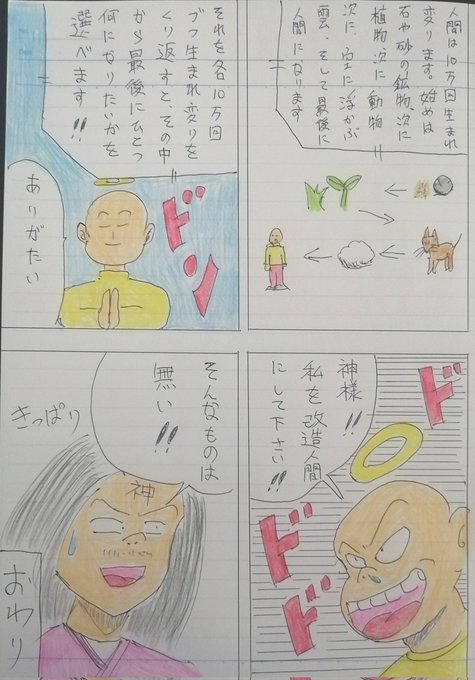 人間は10万回生まれ
変ります。始めは
石や砂の鉱物次に
植物次に動物
次に空に浮かぶ
雲、そして最後に
人間になります
それを各10万回
づつ生まれ変りを
くり返すと、その中
から最後にひとつ
何になりたいかを
選べます!!
ドン
ありがたい
ド
神様!!
私を改造人間
にして下さい!!
ド
ド
そんなものは
無い!!
きっぱり
神
おわり